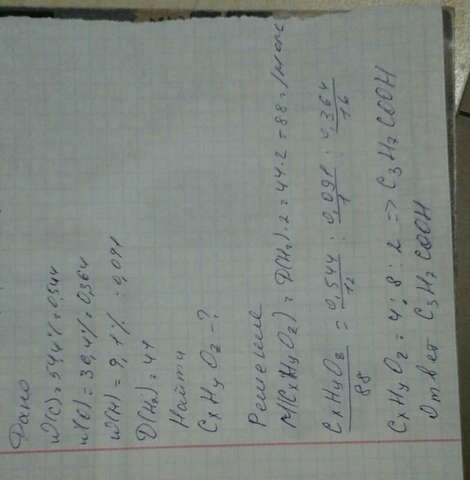 Дано
W(C) = 54,4% = 0,544
W(O) = 36,4% = 0,364
W(H) = 9,1% = 0,091
D(H₂) = 44
Найти
CxHyO₂ - ?
Решение
M(CxHyO₂) = D(H₂)·2 = 44·2 = 88 г/моль
CxHyO₂ / 88 = 0,544 / 12 : 0,091 / 1 : 0,364 / 16
CxHyO₂ = 4 : 8 : 2 => C₃H₇COOH
Ответ C₃H₇COOH